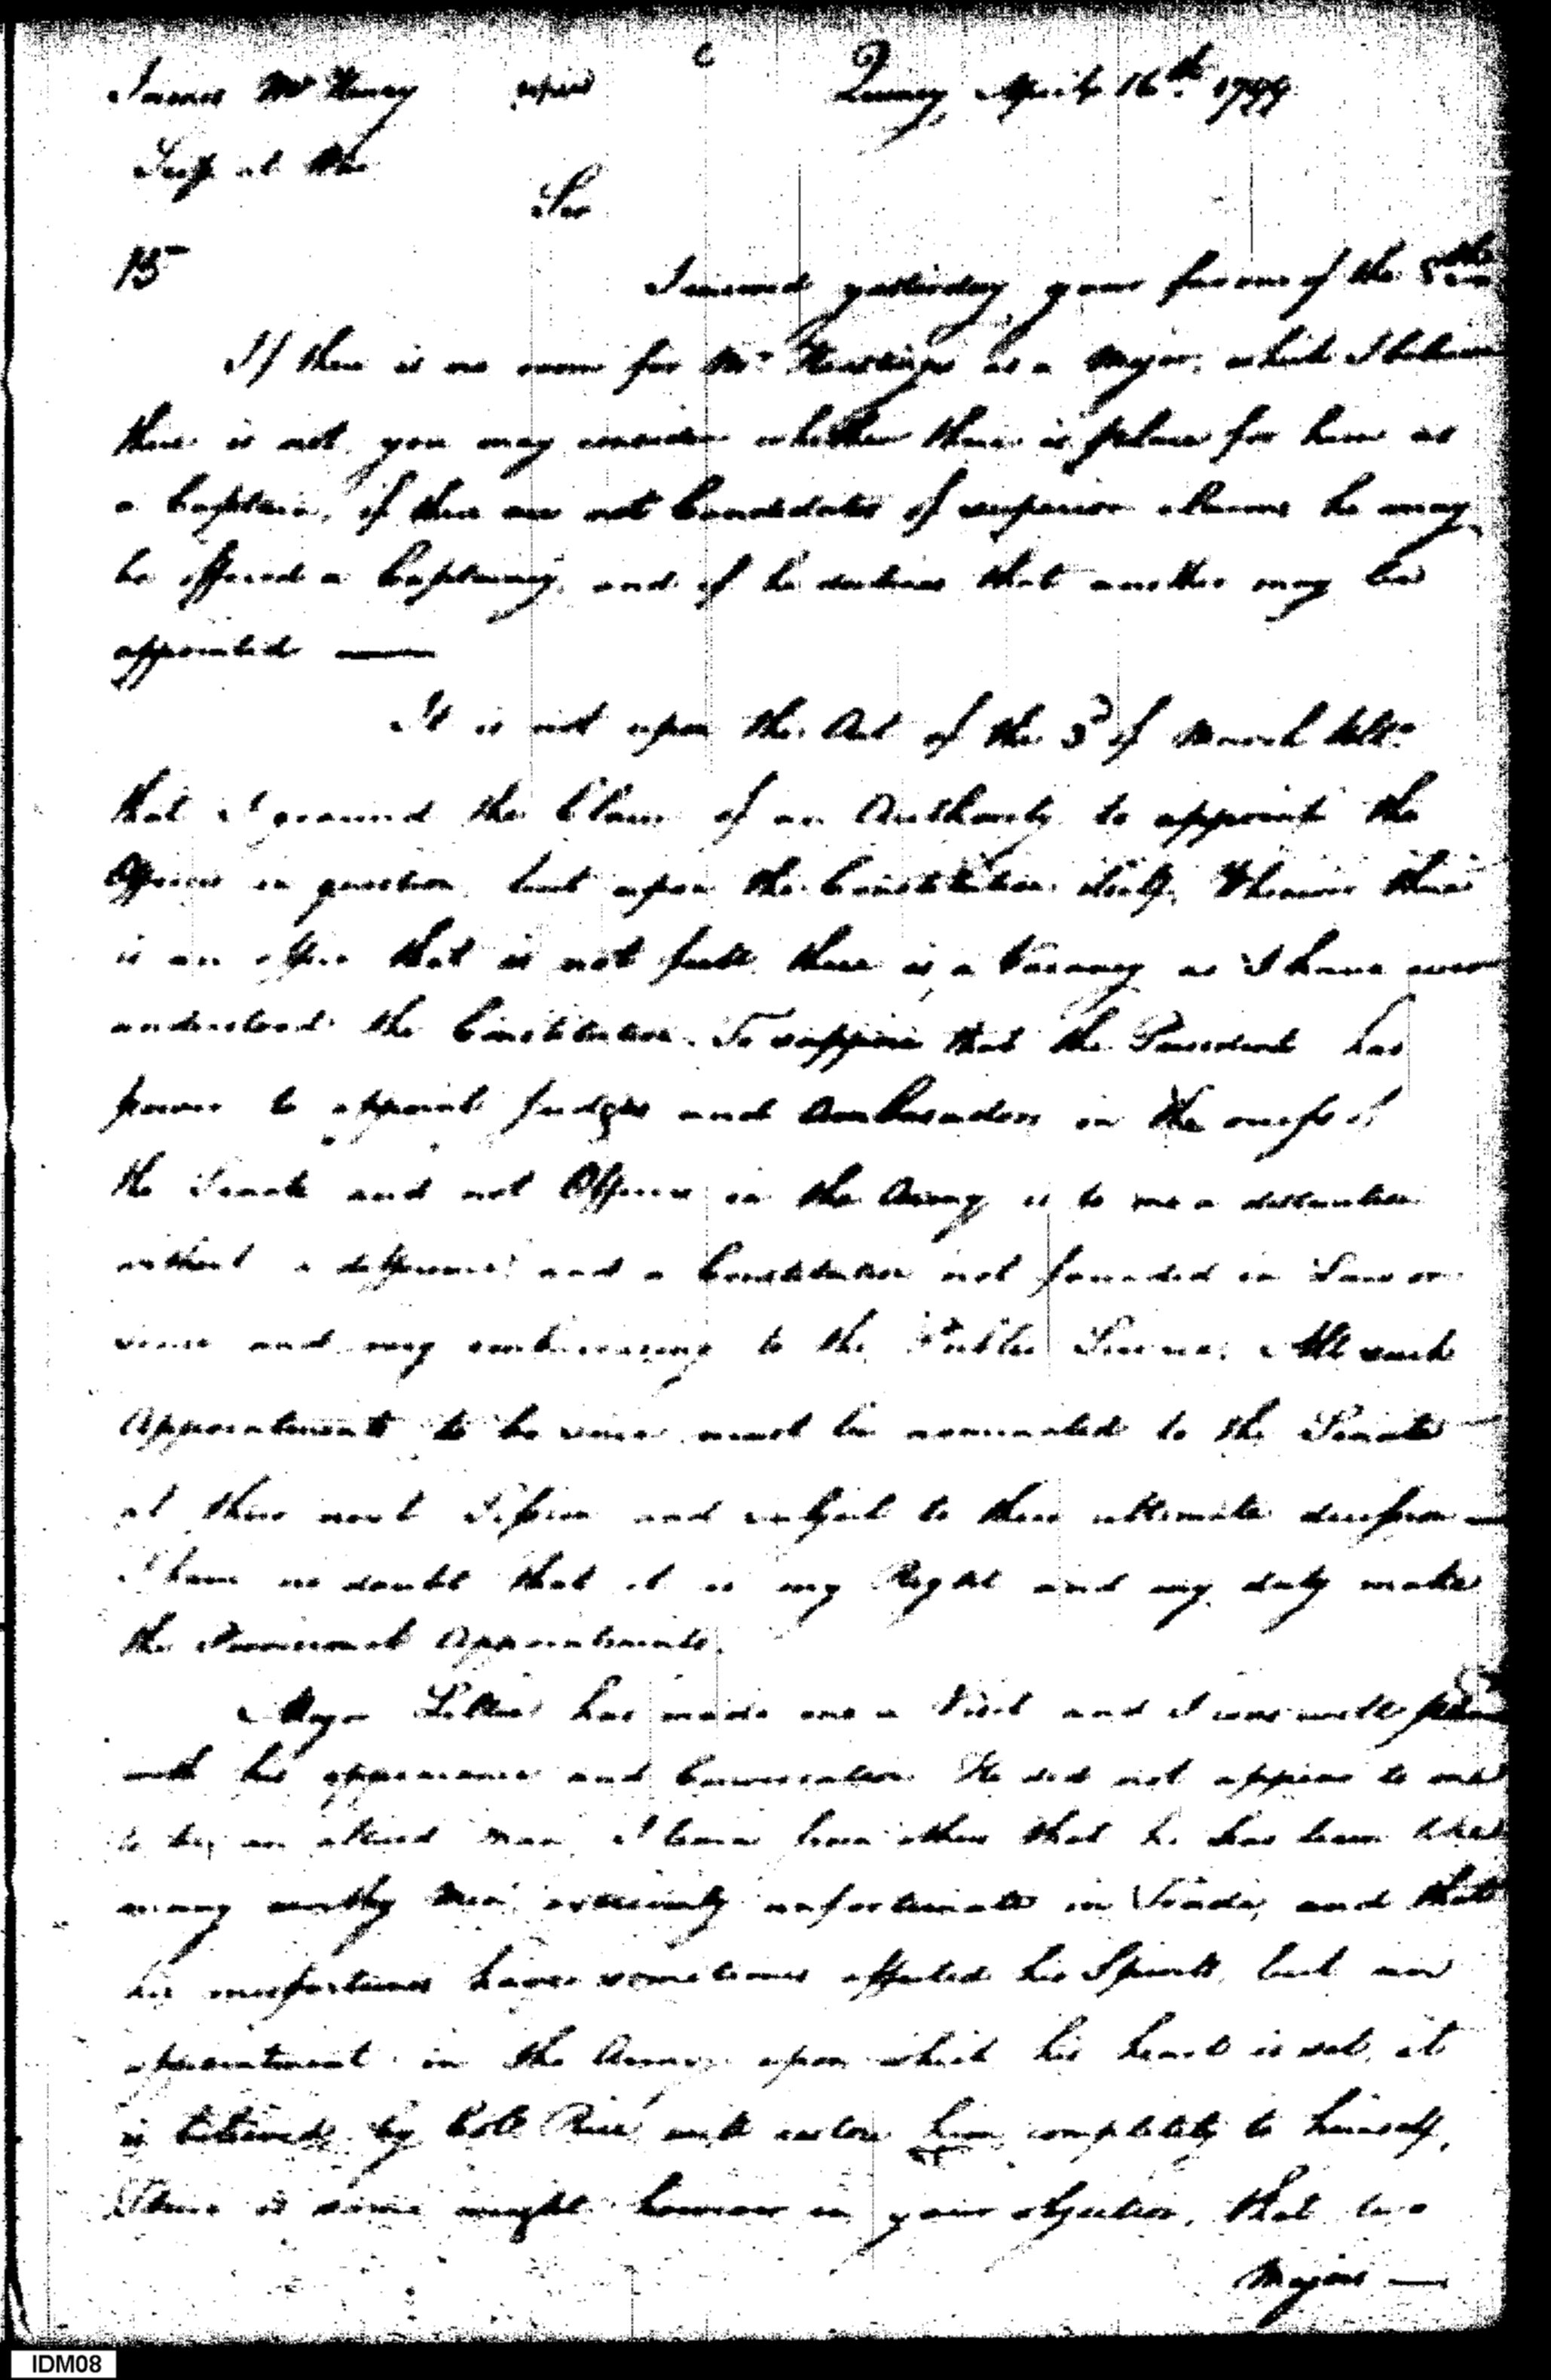 James McHenry Quincy April 16th 1799
Secy at War
Sir
15
I received yesterday your favour of the 5th
If there is no room for Mr Hastings as a Major, which I believe
there is not, you may consider whether there is place for him as
a Captain, if there are not Candidates of superior claims he may
be offered a Captaincy, and if he declines that another may be
appointed —
It is not upon the Act of the 3d of March Ulto
that I ground the Claim of an Authority to appoint the
Officers in question, but upon the Constitution itself. Whenever there
is an office that is not full, there is a Vacancy as I have ever
understood the Constitution. To suppose that the President has
power to appoint Judges and Ambassadors in the recess of
the Senate and not Officers in the Army is to me a distinction
without a difference and a Constitution not founded in Law or
sense and very embarrassing to the Public Service. All such
Appointments to be sure must be nominated to the Senate
at their next Session and subject to their ultimate decision
I have no doubt that it is my Right and my duty make
the Provisional Appointments.
Major Lillie has made me a Visit and I was well pleased
with his appearance and Conversation He did not appear to me
to be an altered man I learn from others that he has been like
many worthy Men extremely unfortunate in Trade, and that
his misfortunes have sometimes affected his Spirits, but an
appointment in the Army upon which his heart is set, it
is believed by Coll Rice will restore him completely to himself,
There is some weight however in your objection, that two
Majors —
IDM08